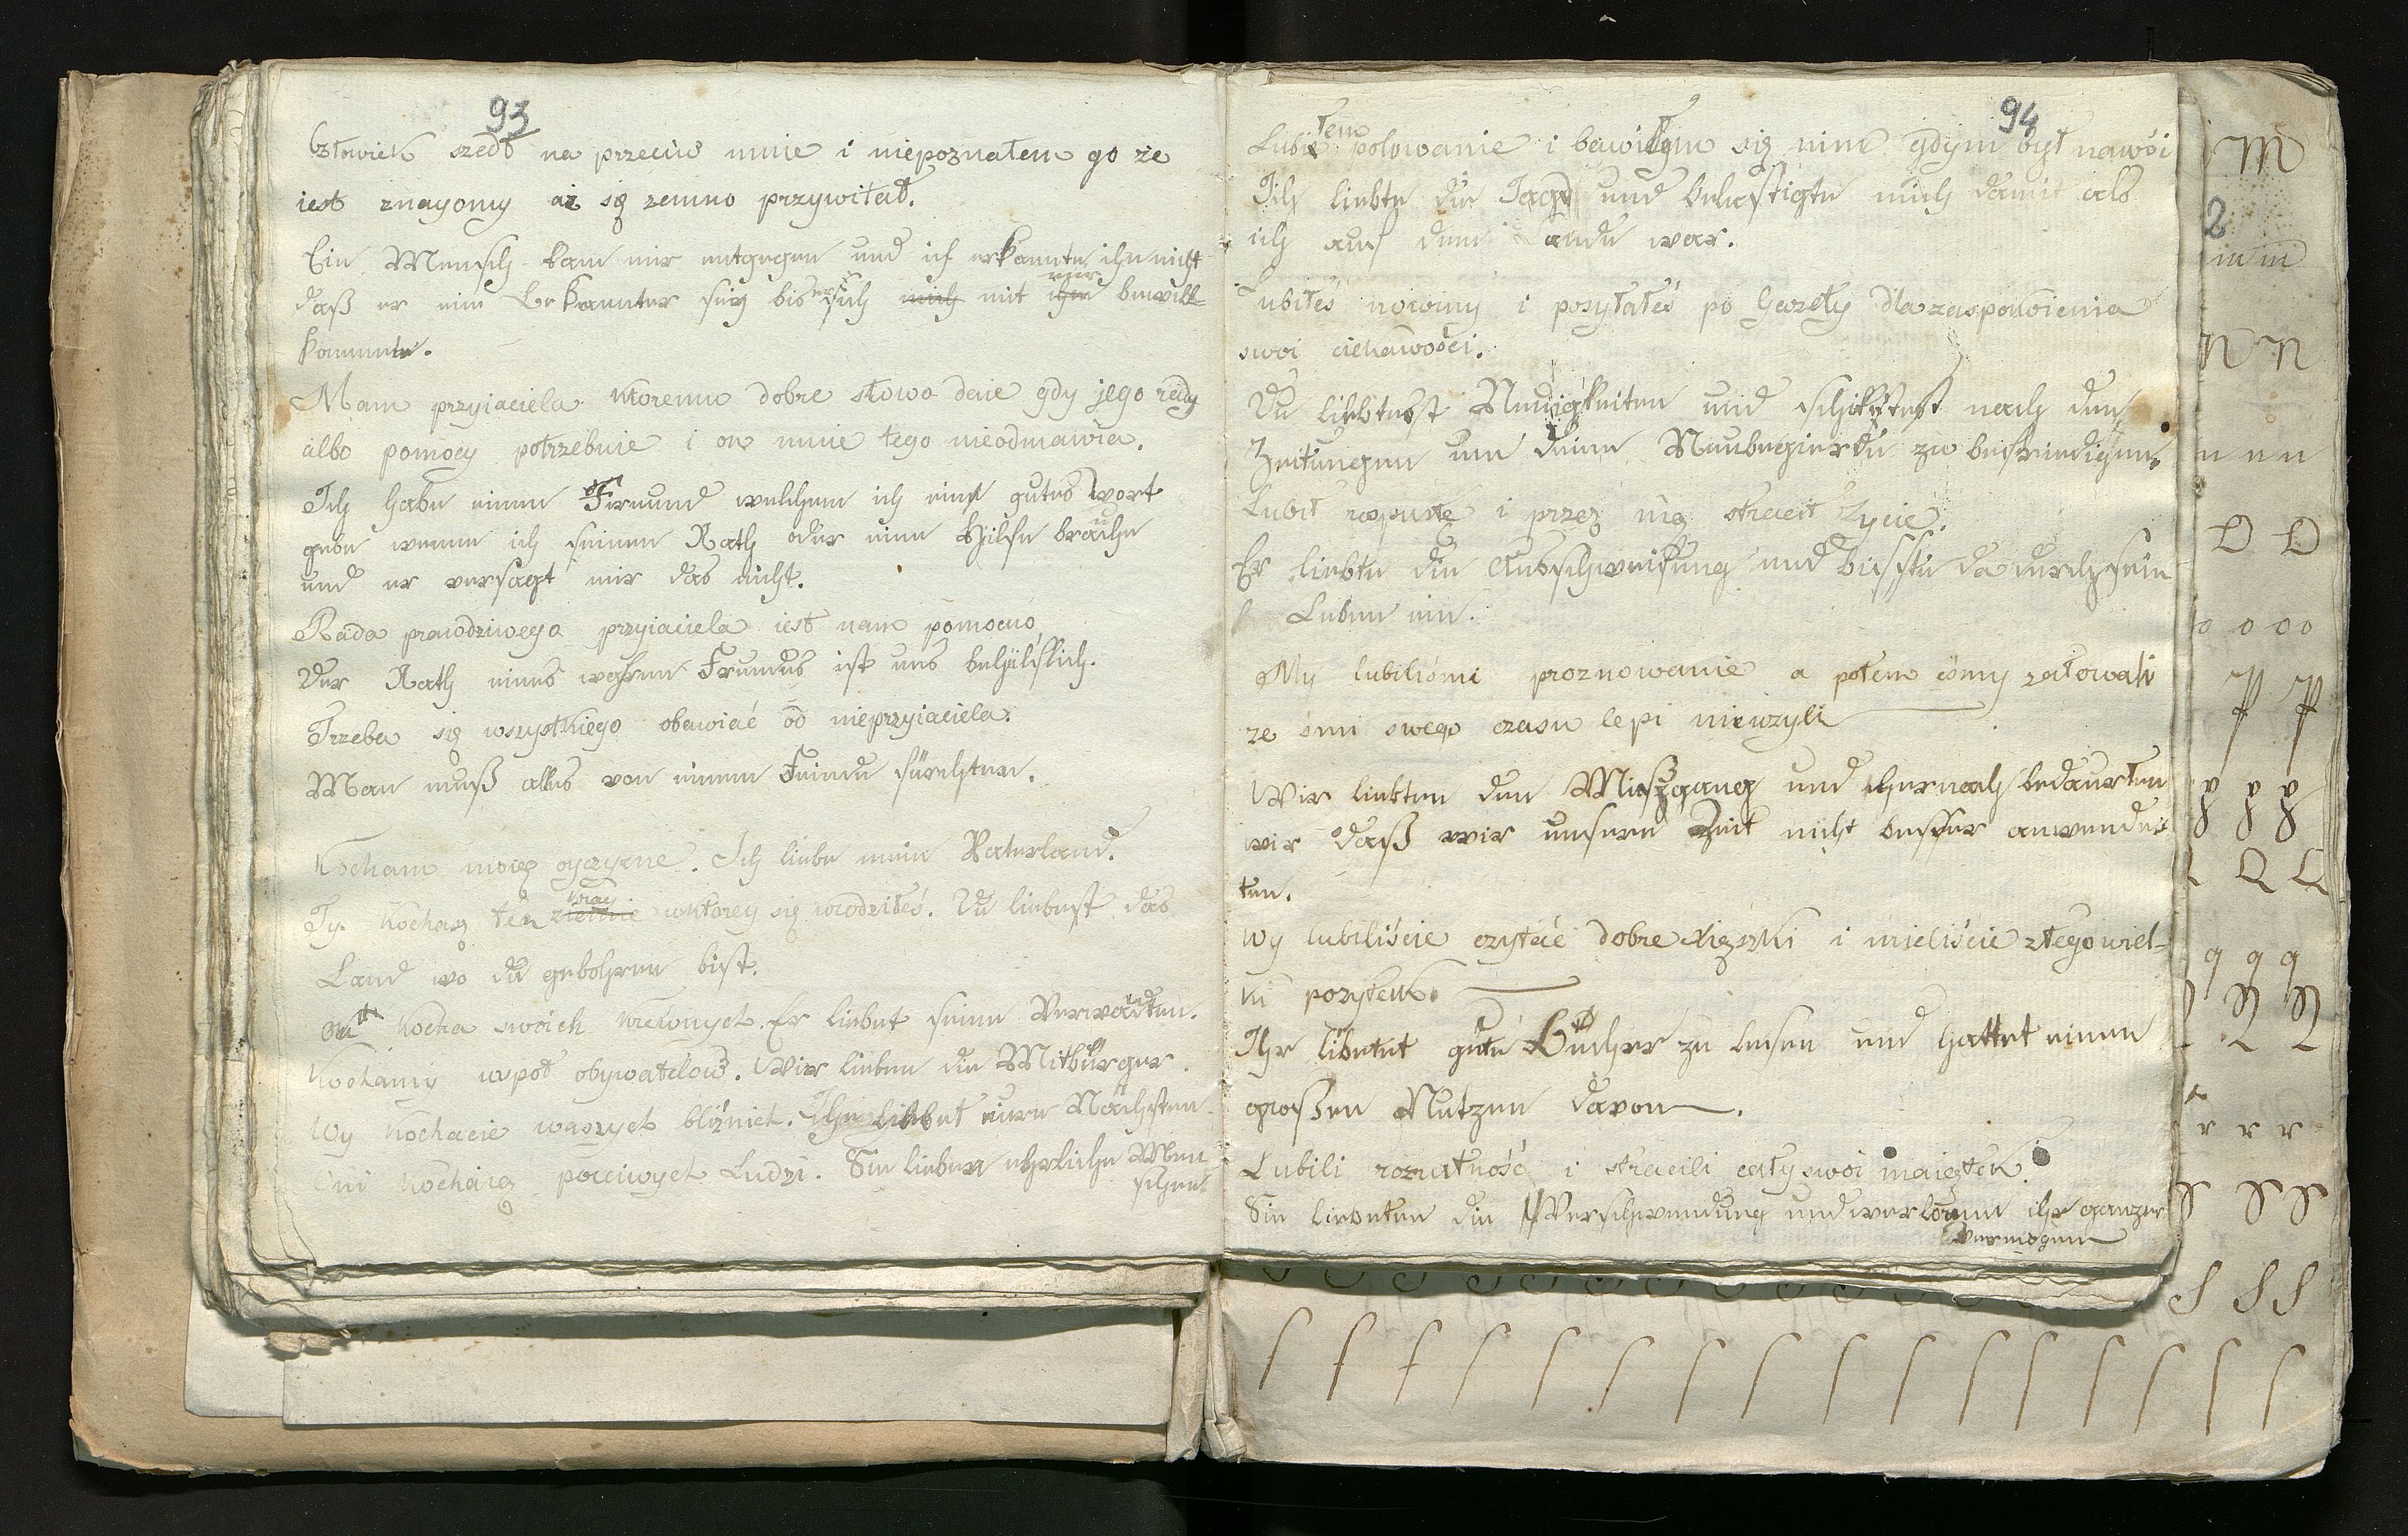 93
Człowiek szedł na przeciw mnie i niepoznałem go że
iest znayomy aż się zemno przywitał.
Ein Mensch kam mir entgegen und ich erkannte ihn nicht
daß er ein Bekannter sey bis er sich mich mit mir ihm bewill-
kommte.
Mam przyiaciela ktoremu dobre słowo daie gdy jego rady
albo pomocy potrzebuie i on mnie tego nieodmawia.
Ich habe einen Freund welchem ich ein gutes Wort
gebe wenn ich seinen Rath oder eine Hülfe brauche
und er versagt mir das nicht.
Rada prawdziwego przyiaciela iest nam pomocno
Der Rath eines wahren Freundes ist uns behülflich.
Trzeba się wszystkiego obawiać od nieprzyiaciela.
Man muß alles von einem Feinde fürchten.
Kocham moię oyczyzne. Ich liebe mein Vaterland.
Ty kochasz ten kray ziemie wktorey się urodziłeś. Du liebest das
Land wo du gebohren bist.
On kocha swoich krewnych. Er liebet seine Verwandten.
Kochamy wspoł obywatelow. Wir lieben die Mitbürger.
Wy kochacie waszych bliźnich. Ihr liebet eure Nächsten.
Oni kochaią poczciwych Ludzi. Sie lieben ehrliche Men
schen
94
Lubiłem polowanie i bawiłym się nim gdym był nawsi
Ich liebte die Jagd und belustigte mich damit als
ich auf dem Lande war.
Lubiłeś nowiny i posyłałeś po Gazety dla zaspokoienia
swoi ciekawości.
Du liebtest Neuigkeiten und schiktest nach den
Zeitungen um deine Neubegierde zu befriedigen.
Lubił rospustę i przez nię stracił życie.
Er liebte die Ausschweifung und büsste dadurch sein
Leben ein.
My lubiliśmi proznowanie a potem ośmy żałowali
że śmi swego czasu lepi nieużyli
Wir liebten den Müßgang und hernach bedauerten
wir daß wir unsere Zeit nicht besser anwende-
ten.
Wy lubiliście czytać dobre xięszki i mieliście ztego wiel-
ki pożytek.
Ihr liebetet gute Bücher zu lesen und hattet einen
großen Nutzen davon.
Lubili rozrutność i stracili cały swoi maiątek.
Sie liebeten die Verschwendung und verloren ihr ganzes
Vermögen
M
2
m m
n n
n n n
O O
o o o o
P P
p p p
Q Q
q q q
R R
r r r
S S S
s s s